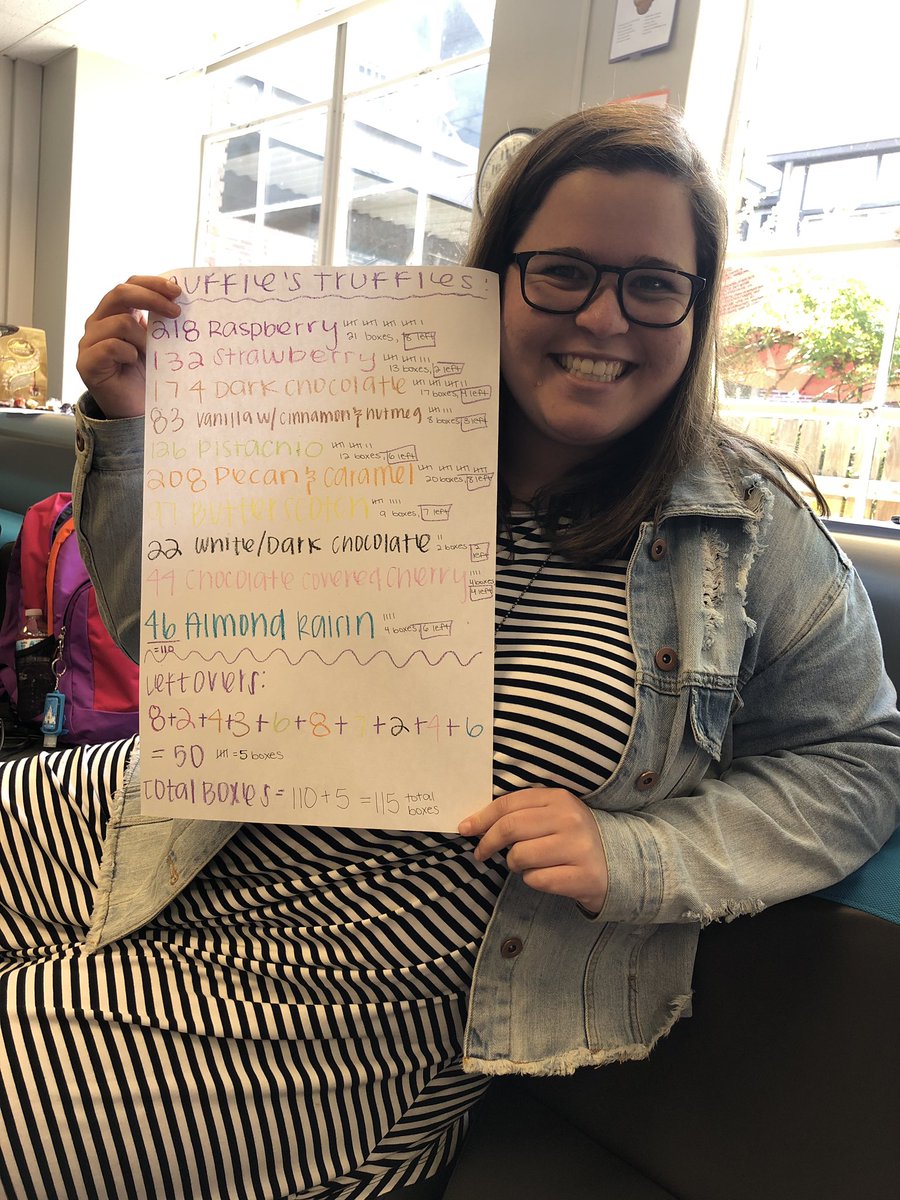 UFFLE'S TRUFFLES!
218 Raspberry 21 boxes, 8 left
132 Strawberry 13 boxes, 2 left
174 Dark chocolate 17 boxes, 4 left
83 vanilla w/cinnamon & nutmeg 8 boxes 3 left
126 Pistachio 12 boxes, 6 left
208 Pecan & caramel 20 boxes, 8 left
97 Butterscotch 9 boxes, 7 left
22 White/Dark chocolate 2 boxes 2 left
44 chocolate covered cherry 4 boxes 4 left
46 Almond Raisin 4 boxes 6 left
=110
Leftovers:
8+2+4+3+6+8+7+2+4+6
=50 = 5 boxes
Total Boxes = 110+5 = 115 total boxes